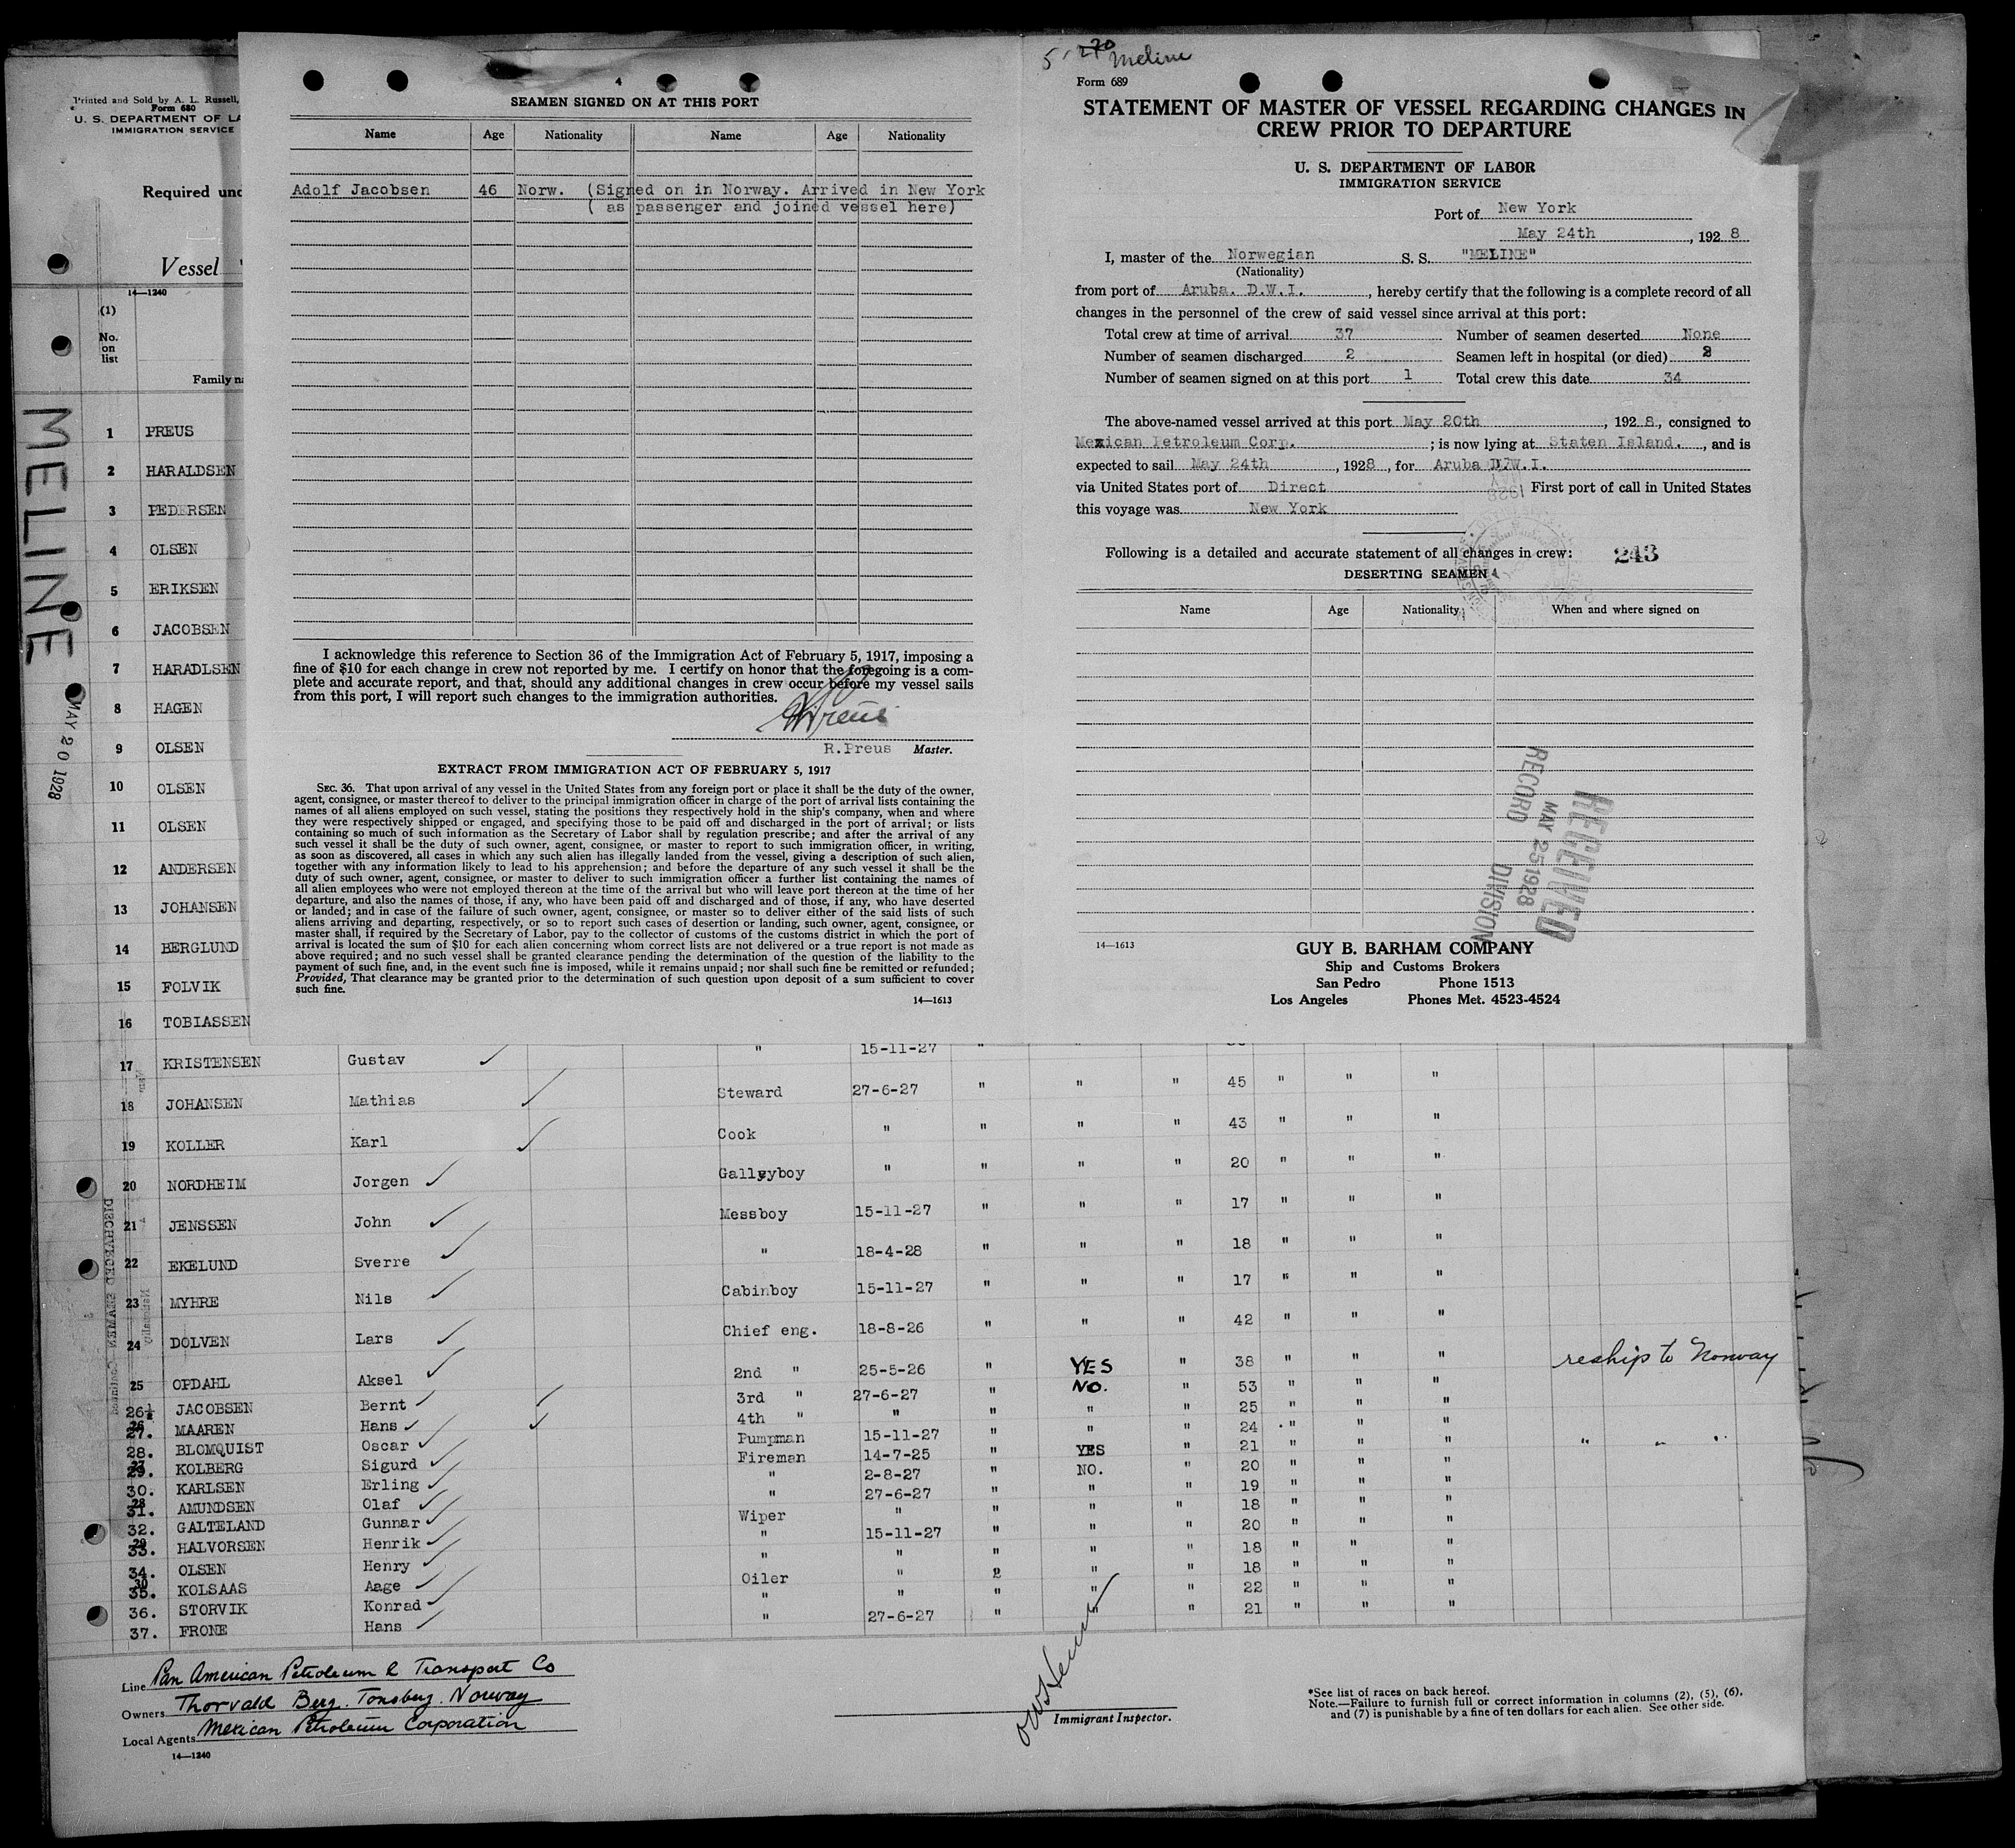 Printed and Sold by A. L. Russell,
Form 680
U. S. DEPARTMENT OF LA
IMMIGRATION SERVICE
Required und
Vessel
14—1240
(1)
No.
on
list
Family na
MELINE
MAY 20 1928
1 PREUS
2 HARALDSEN
3 PEDERSEN
4 OLSEN
5 ERIKSEN
6 JACOBSEN
7 HARADLSEN
8 HAGEN
9 OLSEN
10 OLSEN
11 OLSEN
12 ANDERSEN
13 JOHANSEN
14 BERGLUND
15 FOLVIK
16 TOBIASSEN
4
SEAMEN SIGNED ON AT THIS PORT
Name Age Nationality Name Age Nationality
Adolf Jacobsen 46 Norw. (Signed on in Norway. Arrived in New York
( as passenger and joined vessel here)
I acknowledge this reference to Section 36 of the Immigration Act of February 5, 1917, imposing a
fine of $10 for each change in crew not reported by me. I certify on honor that the foregoing is a com-
plete and accurate report, and that, should any additional changes in crew occur before my vessel sails
from this port, I will report such changes to the immigration authorities.
R Preus
R.Preus Master.
EXTRACT FROM IMMIGRATION ACT OF FEBRUARY 5, 1917
SEC. 36. That upon arrival of any vessel in the United States from any foreign port or place it shall be the duty of the owner,
agent, consignee, or master thereof to deliver to the principal immigration officer in charge of the port of arrival lists containing the
names of all aliens employed on such vessel, stating the positions they respectively hold in the ship's company, when and where
they were respectively shipped or engaged, and specifying those to be paid off and discharged in the port of arrival; or lists
containing so much of such information as the Secretary of Labor shall by regulation prescribe; and after the arrival of any
such vessel it shall be the duty of such owner, agent, consignee, or master to report to such immigration officer, in writing,
as soon as discovered, all cases in which any such alien has illegally landed from the vessel, giving a description of such alien,
together with any information likely to lead to his apprehension; and before the departure of any such vessel it shall be the
duty of such owner, agent, consignee, or master to deliver to such immigration officer a further list containing the names of
all alien employees who were not employed thereon at the time of the arrival but who will leave port thereon at the time of her
departure, and also the names of those, if any, who have been paid off and discharged and of those, if any, who have deserted
or landed; and in case of the failure of such owner, agent, consignee, or master so to deliver either of the said lists of such
aliens arriving and departing, respectively, or so to report such cases of desertion or landing, such owner, agent, consignee, or
master shall, if required by the Secretary of Labor, pay to the collector of customs of the customs district in which the port of
arrival is located the sum of $10 for each alien concerning whom correct lists are not delivered or a true report is not made as
above required; and no such vessel shall be granted clearance pending the determination of the question of the liability to the
payment of such fine, and, in the event such fine is imposed, while it remains unpaid; nor shall such fine be remitted or refunded;
Provided, That clearance may be granted prior to the determination of such question upon deposit of a sum sufficient to cover
such fine.
14—1613
Meline
Form 689
STATEMENT OF MASTER OF VESSEL REGARDING CHANGES IN
CREW PRIOR TO DEPARTURE
U. S. DEPARTMENT OF LABOR
IMMIGRATION SERVICE
Port of New York
May 24th, 1928
I, master of the Norwegian S. S. "MELINE"
(Nationality)
from port of Aruba. D.W.I., hereby certify that the following is a complete record of all
changes in the personnel of the crew of said vessel since arrival at this port:
Total crew at time of arrival 37 Number of seamen deserted None
Number of seamen discharged 2 Seamen left in hospital (or died) 2
Number of seamen signed on at this port 1 Total crew this date 34
The above-named vessel arrived at this port May 20th, 1928, consigned to
Mexican Petroleum Corp.; is now lying at Staten Island., and is
expected to sail May 24th, 1928, for Aruba D.W.I.
via United States port of Direct First port of call in United States
this voyage was New York
Following is a detailed and accurate statement of all changes in crew: 243
DESERTING SEAMEN
Name Age Nationality When and where signed on
RECEIVED
MAY 25 1928
RECORD DIVISION
14—1613
GUY B. BARHAM COMPANY
Ship and Customs Brokers
San Pedro Phone 1513
Los Angeles Phones Met. 4523-4524
17 KRISTENSEN Gustav " 15-11-27 "
18 JOHANSEN Mathias Steward 27-6-27 " " " 45 " " "
19 KOLLER Karl Cook " " " " 43 " " "
20 NORDHEIM Jorgen Galleyboy " " " " 20 " " "
21 JENSSEN John Messboy 15-11-27 " " " 17 " " "
22 EKELUND Sverre " 18-4-28 " " " 18 " " "
23 MYHRE Nils Cabinboy 15-11-27 " " " 17 " " "
24 DOLVEN Lars Chief eng. 18-8-26 " " " 42 " " "
25 OPDAHL Aksel 2nd " 25-5-26 " YES " 38 " " " reship to Norway
26½ JACOBSEN Bernt 3rd " 27-6-27 " NO. " 53 " " "
27. MAAREN Hans 4th " " " " " 25 " " "
28. BLOMQUIST Oscar Pumpman 15-11-27 " " " 24 " " "
29. KOLBERG Sigurd Fireman 14-7-25 " YES " 21 " " " " " "
30. KARLSEN Erling " 2-8-27 " NO. " 20 " " "
31. AMUNDSEN Olaf " 27-6-27 " " " 19 " " "
32. GALTELAND Gunnar Wiper " " " " 18 " " "
33. HALVORSEN Henrik " 15-11-27 " " " 20 " " "
34. OLSEN Henry " " " " " 18 " " "
35. KOLSAAS Aage Oiler " 2 " " 18 " " "
36. STORVIK Konrad " " " " " 22 " " "
37. FRONE Hans " 27-6-27 " " " 21 " " "
Line Pan American Petroleum & Transport Co
Owners Thorvald Berg. Tonsberg. Norway
Local Agents Mexican Petroleum Corporation
14—1240
Immigrant Inspector.
*See list of races on back hereof.
Note.—Failure to furnish full or correct information in columns (2), (5), (6),
and (7) is punishable by a fine of ten dollars for each alien. See other side.